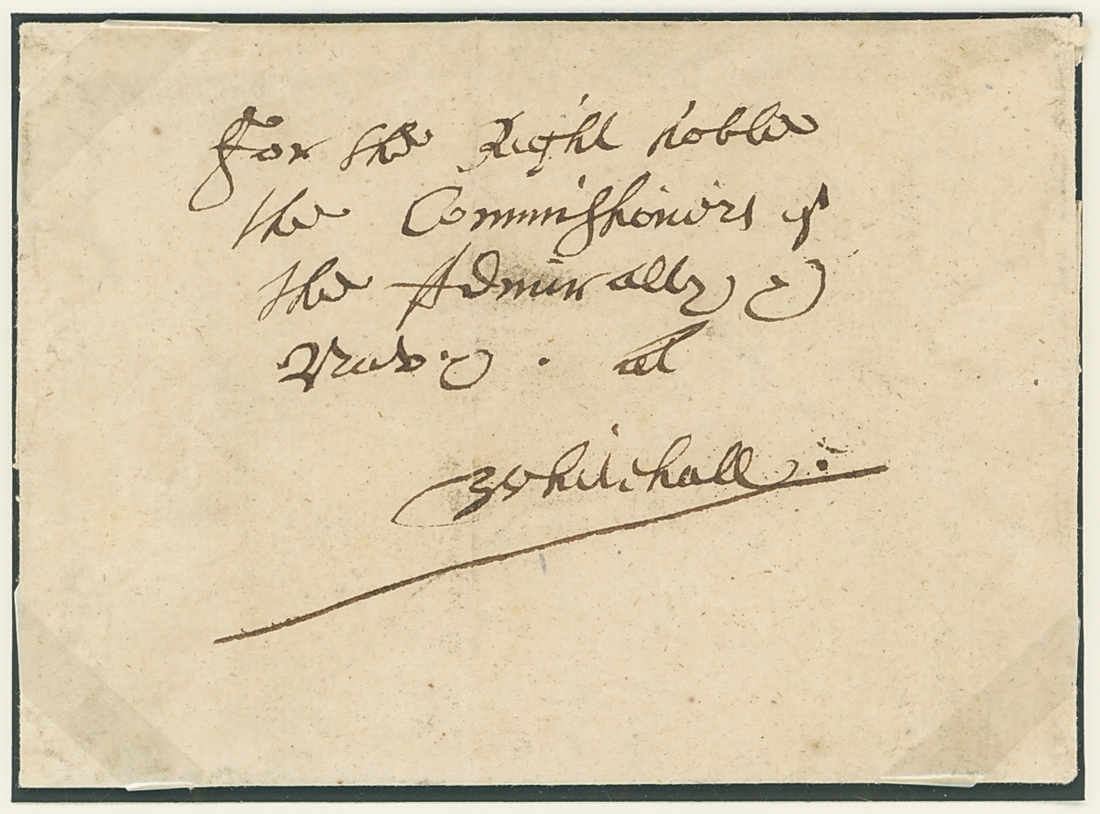 For the Right hoble
the Commissioners of
the Admiralty &
Navy . at
Whitehall .